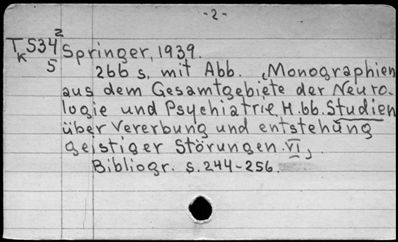 -2-
TK534² Springer, 1939.
5
266 s. mit Abb. „Monographien
aus dem Gesamtgebiete der Neuro-
logie und Psychiatrie, H.66. Studien
über Vererbung und entstehung
geistiger Störungen. VI„
Bibliogr. s. 244-256.